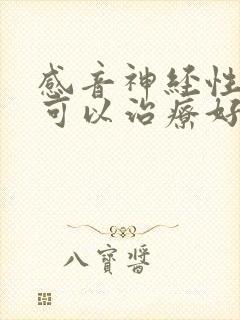 感音神経性
可以治療好
八寶醬